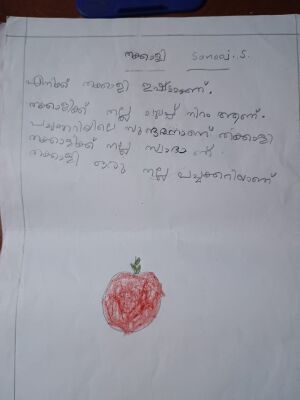 തക്കാളി Sanooj.S.
എനിക്ക് തക്കാളി ഇഷ്ടമാണ്.
തക്കാളിക്ക് നല്ല ചുവപ്പ് നിറം ആണ്.
പച്ചക്കറിയിലെ സുന്ദരനാണ് തക്കാളി
തക്കാളിക്ക് നല്ല സ്വാദാണ്.
തക്കാളി ഒരു നല്ല പച്ചക്കറിയാണ്